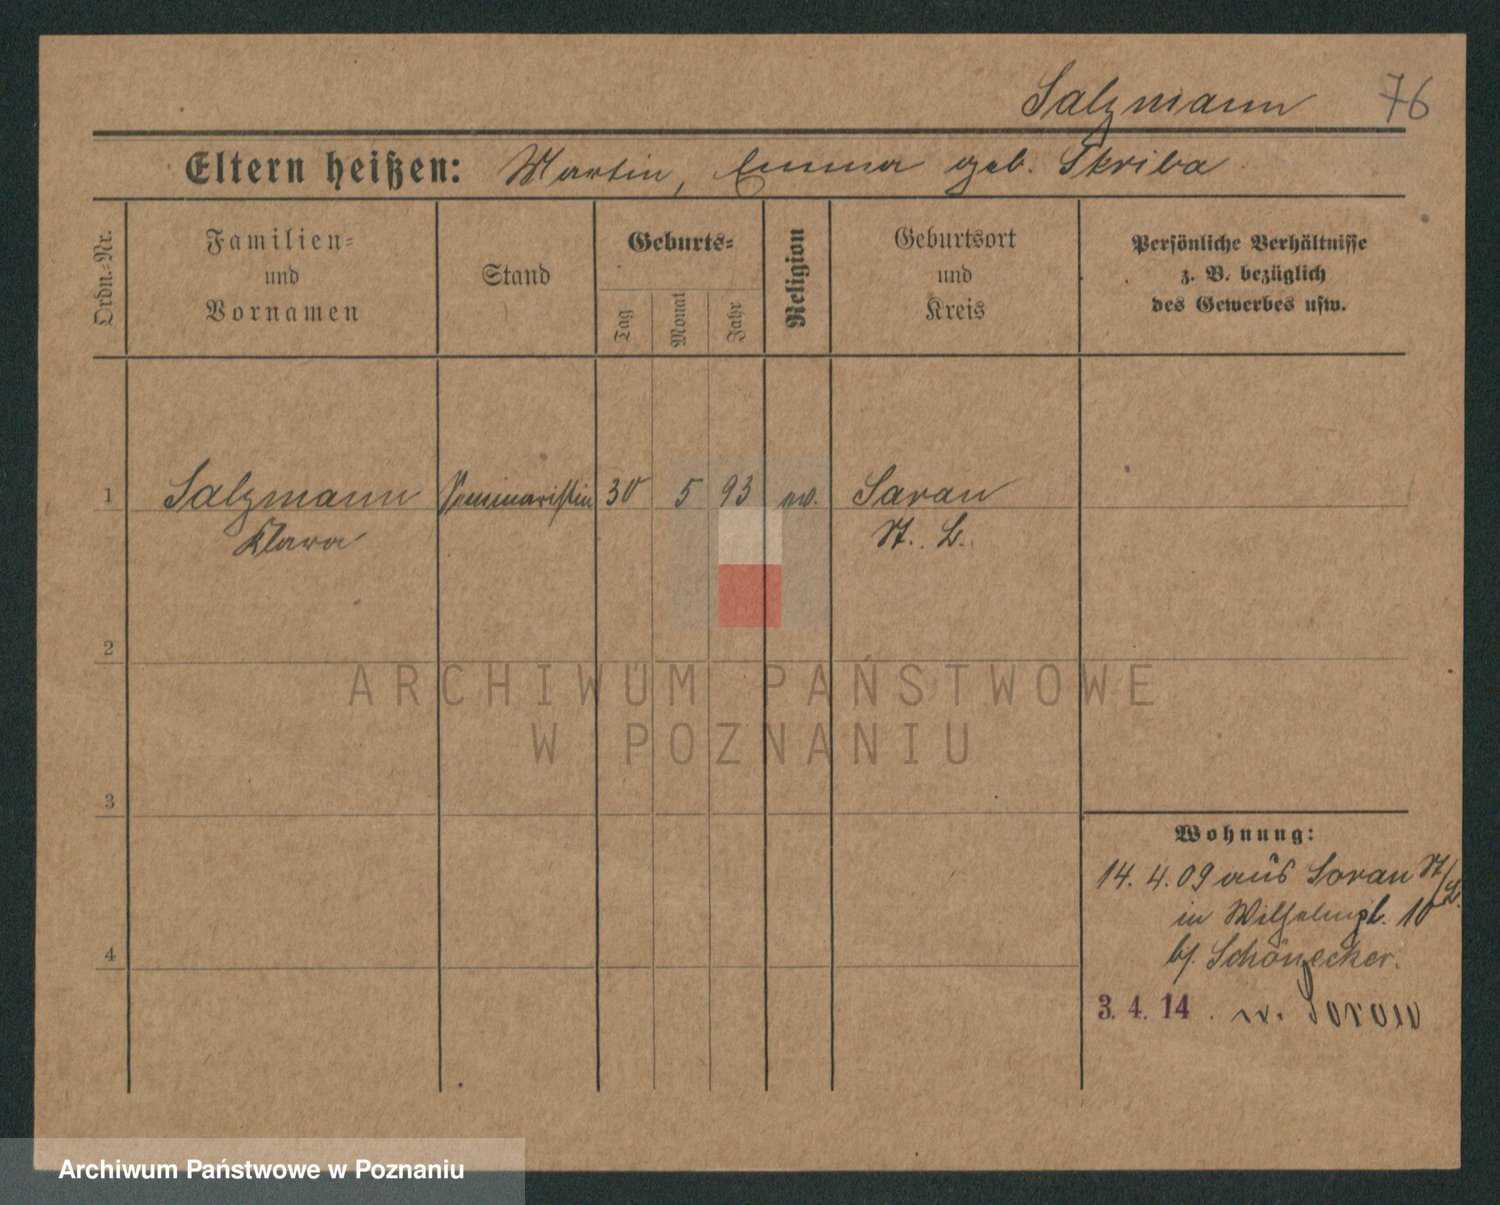 Salzmann 76
Eltern heißen: Martin, Emma geb. Skriba
Ordn.=Nr.
Familien=
und
Vornamen
Stand
Geburts=
Tag
Monat
Jahr
Religion
Geburtsort
und
Kreis
Persönliche Verhältnisse
z. B. bezüglich
des Gewerbes usw.
1 Salzmann Seminaristin 30 5 93 ev. Sorau
Klara N. L.
2
ARCHIWUM PAŃSTWOWE
W POZNANIU
3
Wohnung:
14. 4. 09 aus Sorau N/L.
in Wilhelmpl. 10
b/. Schönecker.
4
3. 4. 14. n. Sorau
Archiwum Państwowe w Poznaniu